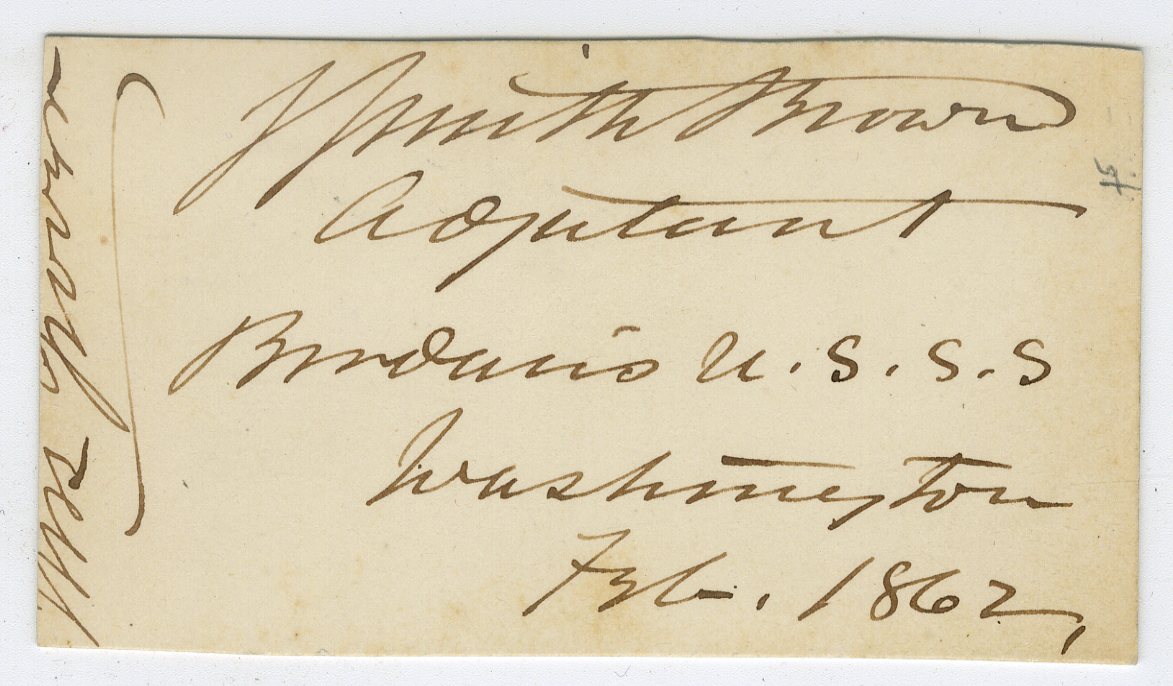 J Smith Brown
Adjutant
Berdan's U.S.S.S
Washington
Feb. 1862,